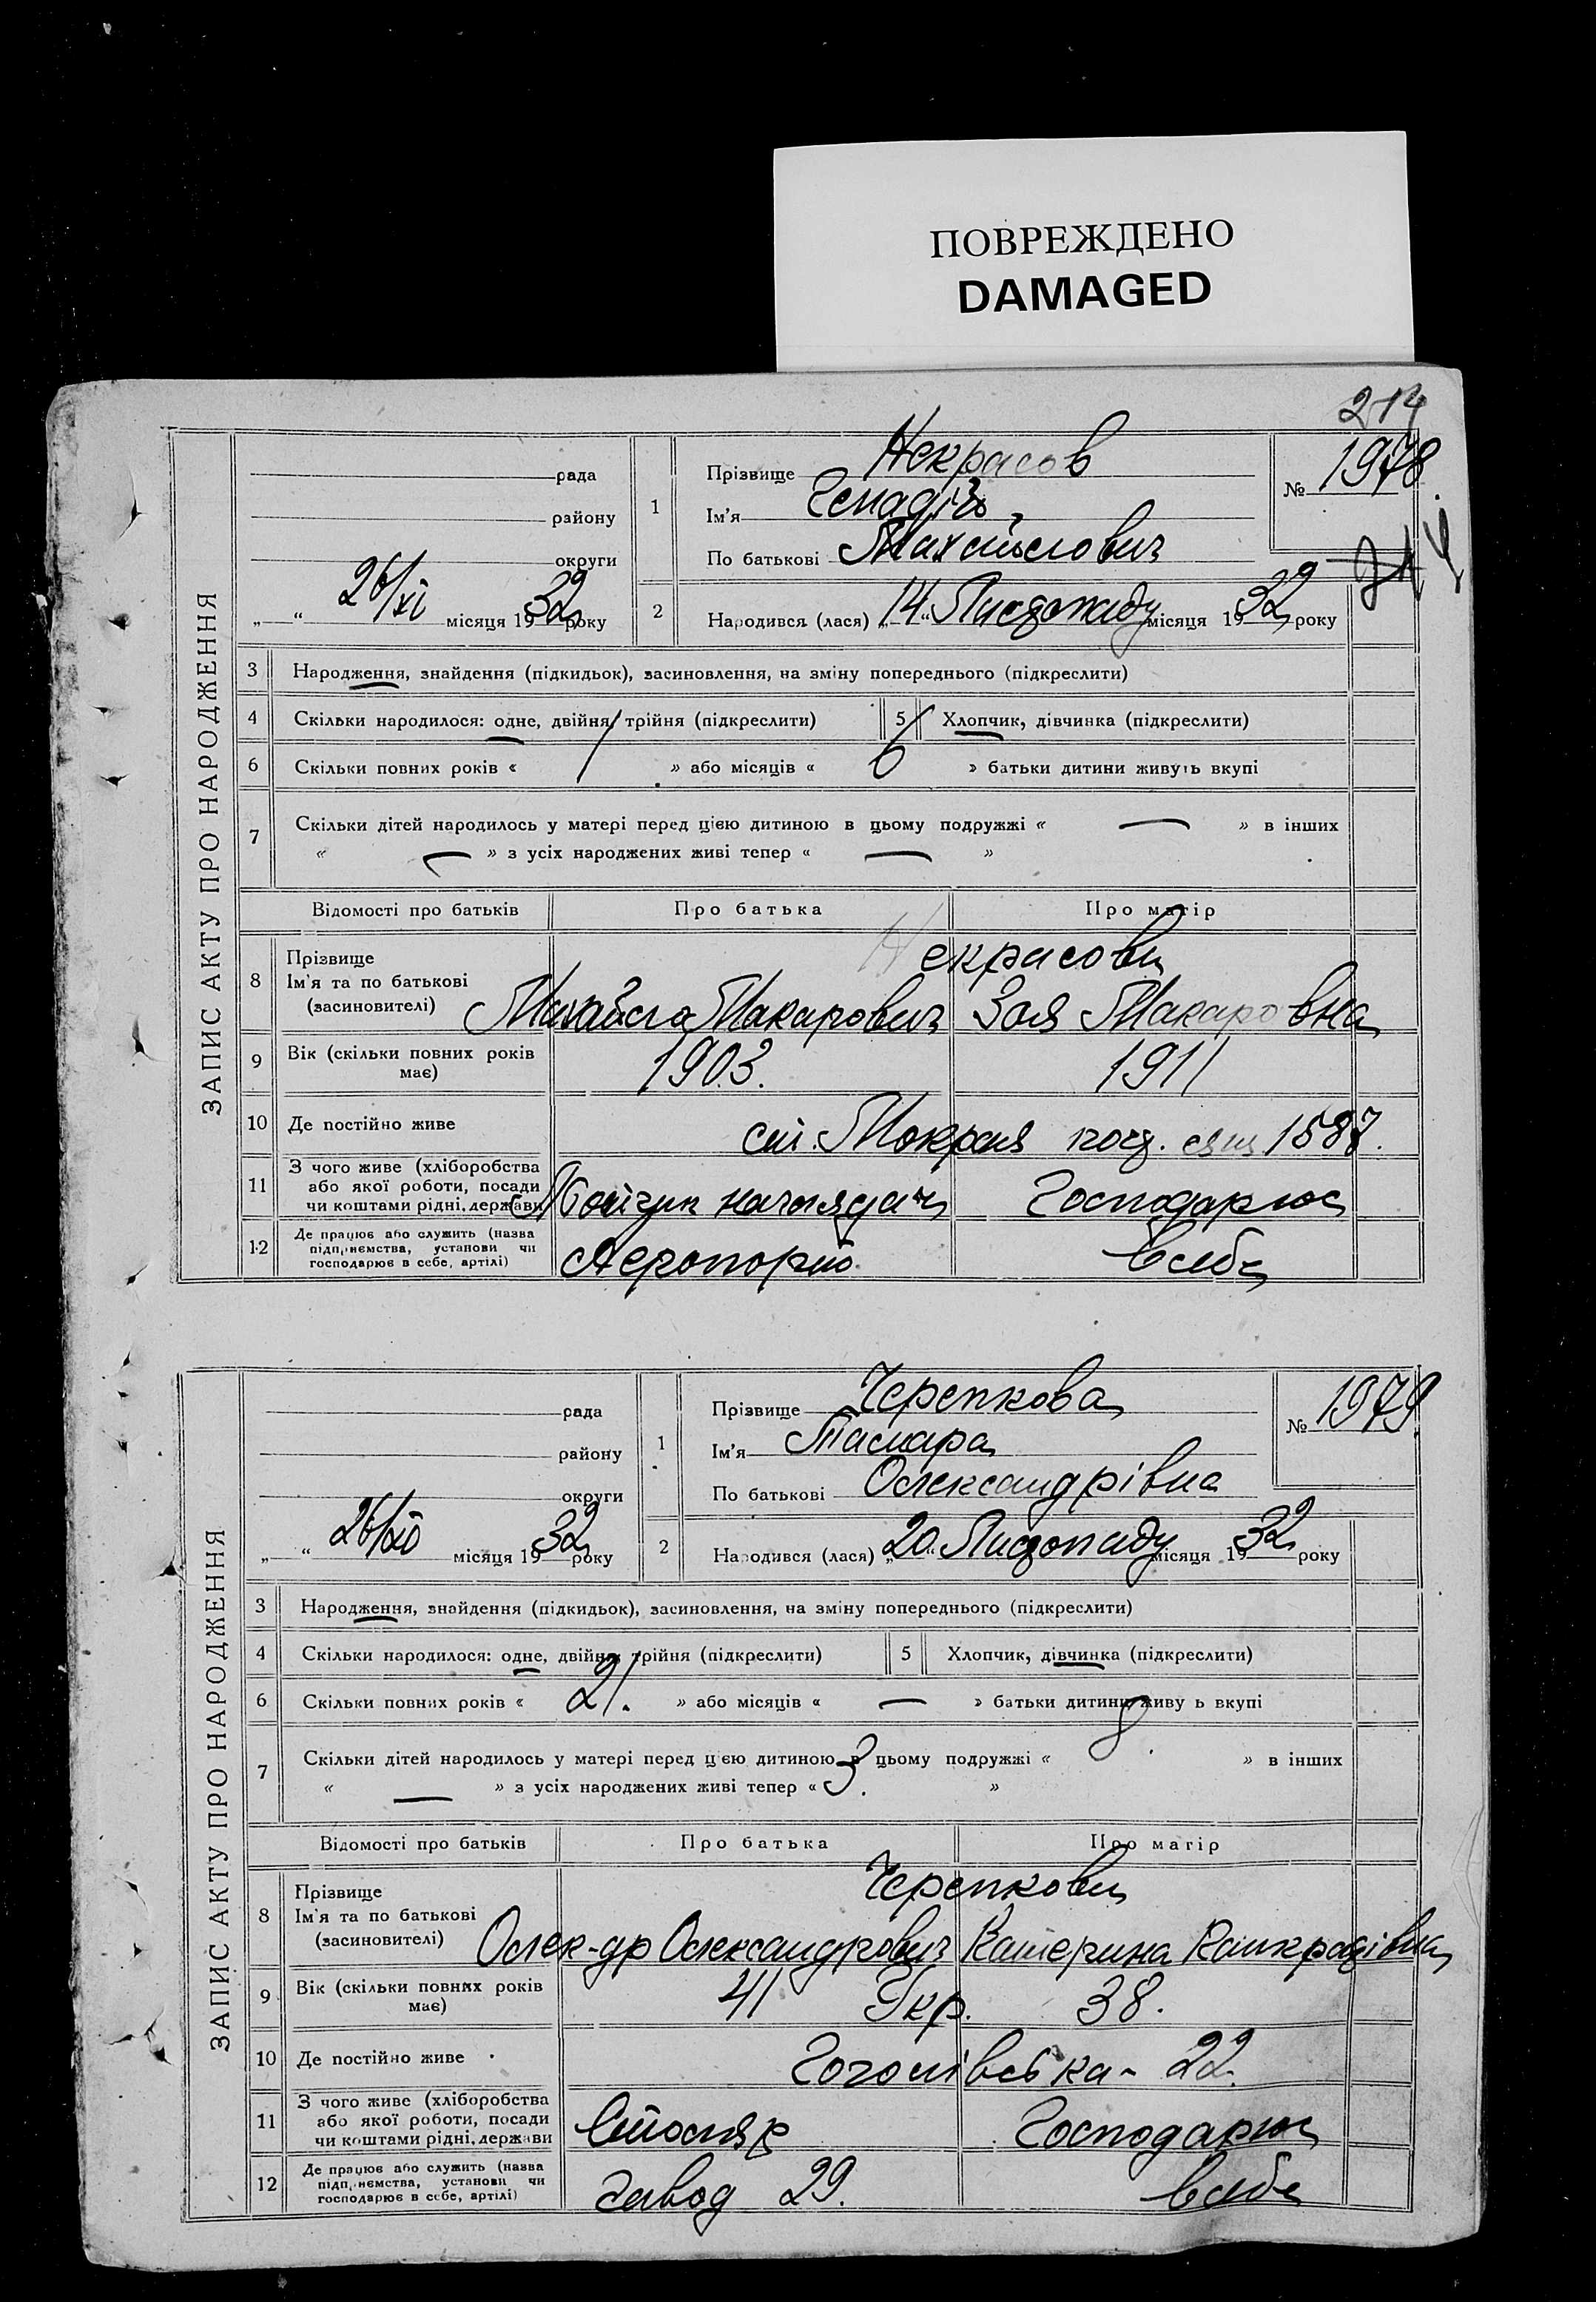 ПОВРЕЖДЕНО
DAMAGED
214
ЗАПИС АКТУ ПРО НАРОДЖЕННЯ
рада
району
округи
„ “ 26/XI місяця 1932 року
1
Прізвище Некрасов
Ім'я Генадій
По батькові Михайлович
№ 1978.
2
Народився (лася) „14“ Листопаду місяця 1932 року
3 Народження, знайдення (підкидьок), засиновлення, на зміну попереднього (підкреслити)
4 Скільки народилося: одне, двійня, трійня (підкреслити)
5 Хлопчик, дівчинка (підкреслити)
6 Скільки повних років « 1 » або місяців « 6 » батьки дитини живуть вкупі
7 Скільки дітей народилось у матері перед цією дитиною в цьому подружжі « — » в інших
« — » з усіх народжених живі тепер « — »
Відомості про батьків
Про батька
Про матір
8 Прізвище
Ім'я та по батькові
(засиновителі)
Некрасови
Михайло Макарович
Зоя Макаровна
9 Вік (скільки повних років
має)
1903.
1911
10 Де постійно живе
Мокрая 1587.
11 З чого живе (хліборобства
або якої роботи, посади
чи коштами рідні, держави
Господарює
12 Де працює або служить (назва
підприємства, установи чи
господарює в себе, артілі)
Аеропорт
в себе
ЗАПИС АКТУ ПРО НАРОДЖЕННЯ
рада
району
округи
„ “ 26/XI місяця 1932 року
1
Прізвище Черепкова
Ім'я Тамара
По батькові Олександрівна
№ 1979.
2
Народився (лася) „20“ Листопаду місяця 1932 року
3 Народження, знайдення (підкидьок), засиновлення, на зміну попереднього (підкреслити)
4 Скільки народилося: одне, двійня, трійня (підкреслити)
5 Хлопчик, дівчинка (підкреслити)
6 Скільки повних років « 21. » або місяців « — » батьки дитини живу ь вкупі
7 Скільки дітей народилось у матері перед цією дитиною в цьому подружжі « 8 » в інших
« — » з усіх народжених живі тепер « 3. »
Відомості про батьків
Про батька
Про матір
8 Прізвище
Ім'я та по батькові
(засиновителі)
Черепкови
Олек-др Олександрович
Катерина
9 Вік (скільки повних років
має)
41 Укр. 38.
10 Де постійно живе
Гоголівська - 22.
11 З чого живе (хліборобства
або якої роботи, посади
чи коштами рідні, держави
Столяр
Господарює
12 Де працює або служить (назва
підприємства, установи чи
господарює в себе, артілі)
Завод 29.
в себе